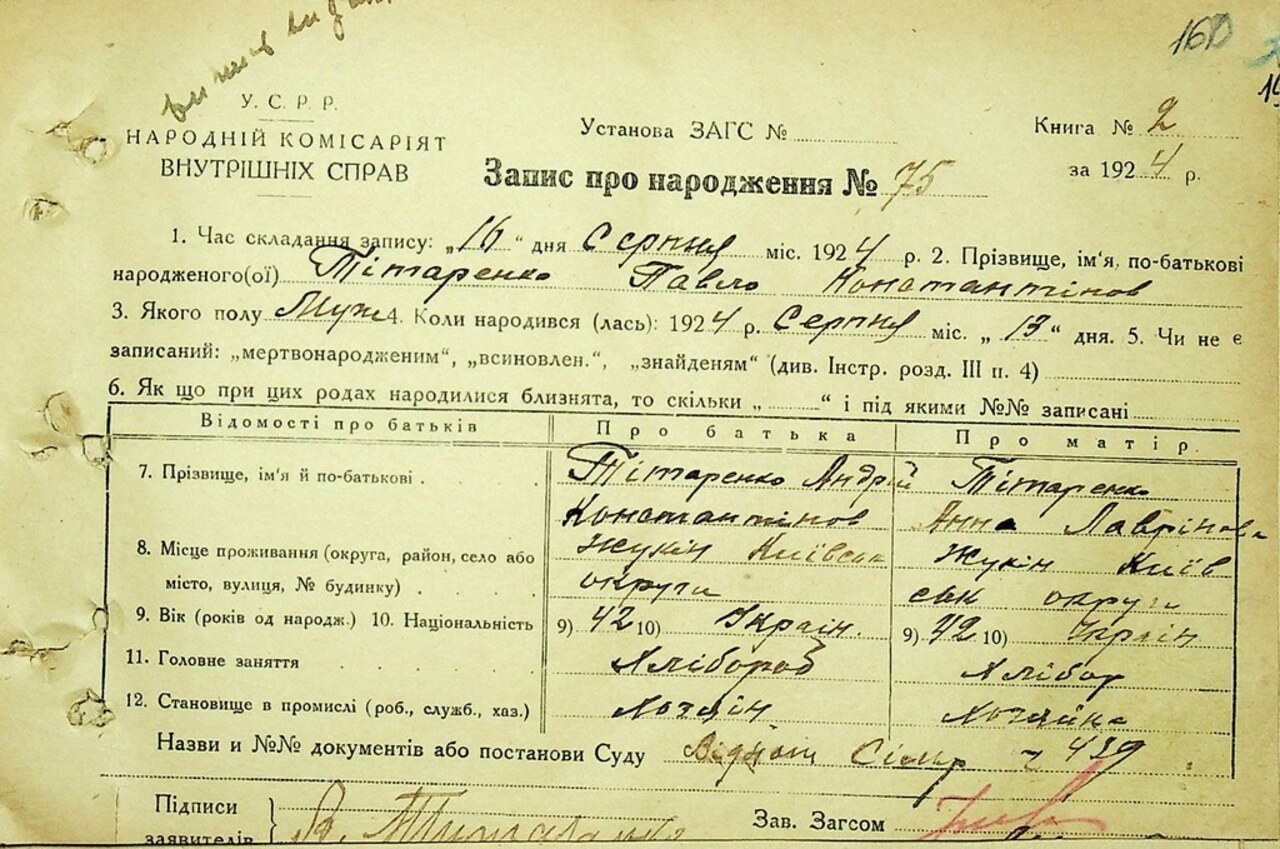 160
У. С. Р. Р.
НАРОДНІЙ КОМІСАРІЯТ
ВНУТРІШНІХ СПРАВ
Установа ЗАГС №
Книга № 2
за 1924 р.
Запис про народження № 75
1. Час складання запису: „16“ дня Серпня міс. 1924 р. 2. Прізвище, ім'я, по-батькові
народженого(ої) Тітаренко Павло Константінов
3. Якого полу Муж 4. Коли народився (лась): 1924 р. Серпня міс. „13“ дня. 5. Чи не є
записаний: „мертвонародженим“, „всиновлен.“, „знайденям“ (див. Інстр. розд. III п. 4)
6. Як що при цих родах народилися близнята, то скільки „ “ і під якими №№ записані
Відомості про батьків Про батька Про матір.
7. Прізвище, ім'я й по-батькові Тітаренко Андрій Тітаренко
Константінов Анна Лаврінова
8. Місце проживання (округа, район, село або Жукін Київськ Жукін Київ
місто, вулиця, № будинку) округи ськ округи
9. Вік (років од народж.) 10. Національність 9) 42 10) Україн. 9) 42 10) Україн
11. Головне заняття Хлібороб Хлібор
12. Становище в промислі (роб., служб., хаз.) Хозяін Хозяйка
Назви и №№ документів або постанови Суду 439
Підписи
заявителів
Зав. Загсом